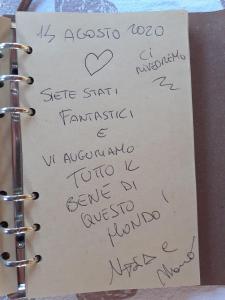 14 AGOSTO 2020
CI
RIVEDREMO
SIETE STATI
FANTASTICI
E
VI AUGURIAMO
TUTTO IL
BENE DI
QUESTO
MONDO!
E